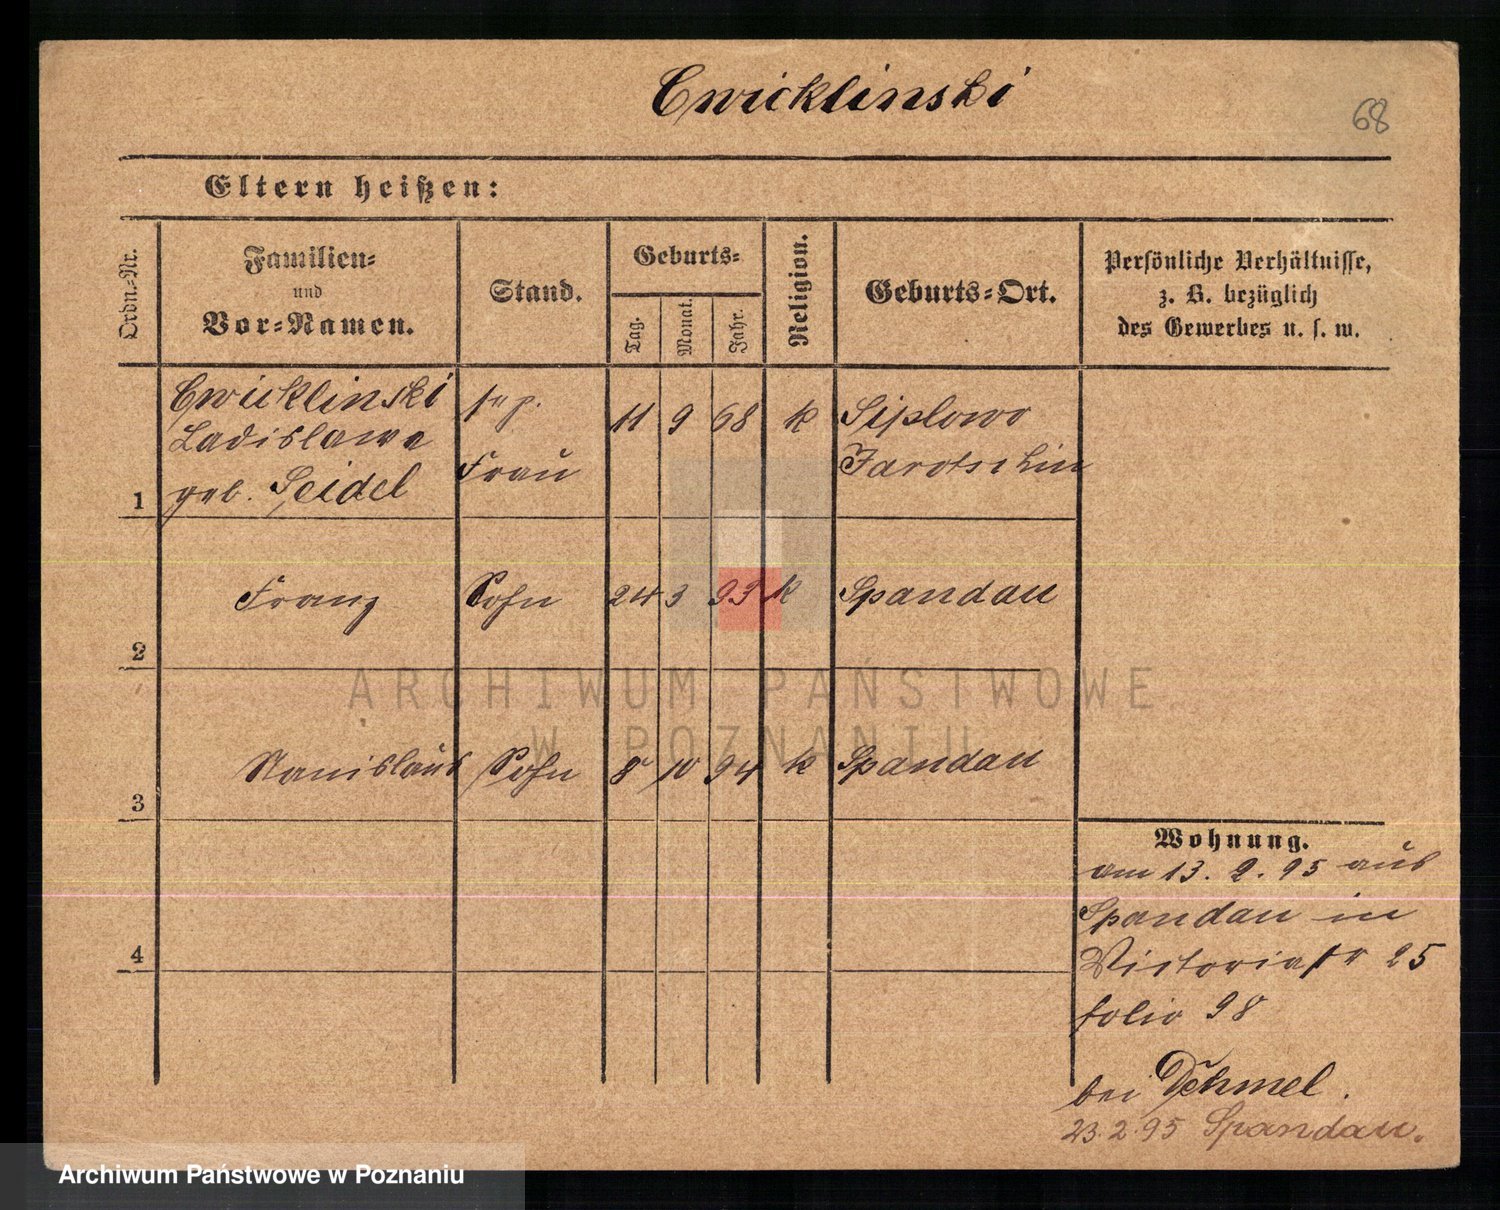 Cwicklinski
68
Eltern heißen:
Ordn.-Nr.
Familien-
und
Vor-Namen.
Stand.
Geburts-
Tag.
Monat.
Jahr.
Religion.
Geburts-Ort.
Persönliche Verhältnisse,
z. B. bezüglich
des Gewerbes u. s. w.
1
Cwicklinski
Ladislawa
geb. Seidel
Frau
11 9 68 k
Siplowo
Jarotschin
2
Franz Sohn 24 3 93 k Spandau
3
Stanislaus Sohn 8 10 94 k Spandau
4
Wohnung.
am 13. 2. 95 aus
Spandau in
Victoriastr 25
folio 98
bei Dehmel.
23.2.95 Spandau.
ARCHIWUM PAŃSTWOWE
W POZNANIU
Archiwum Państwowe w Poznaniu